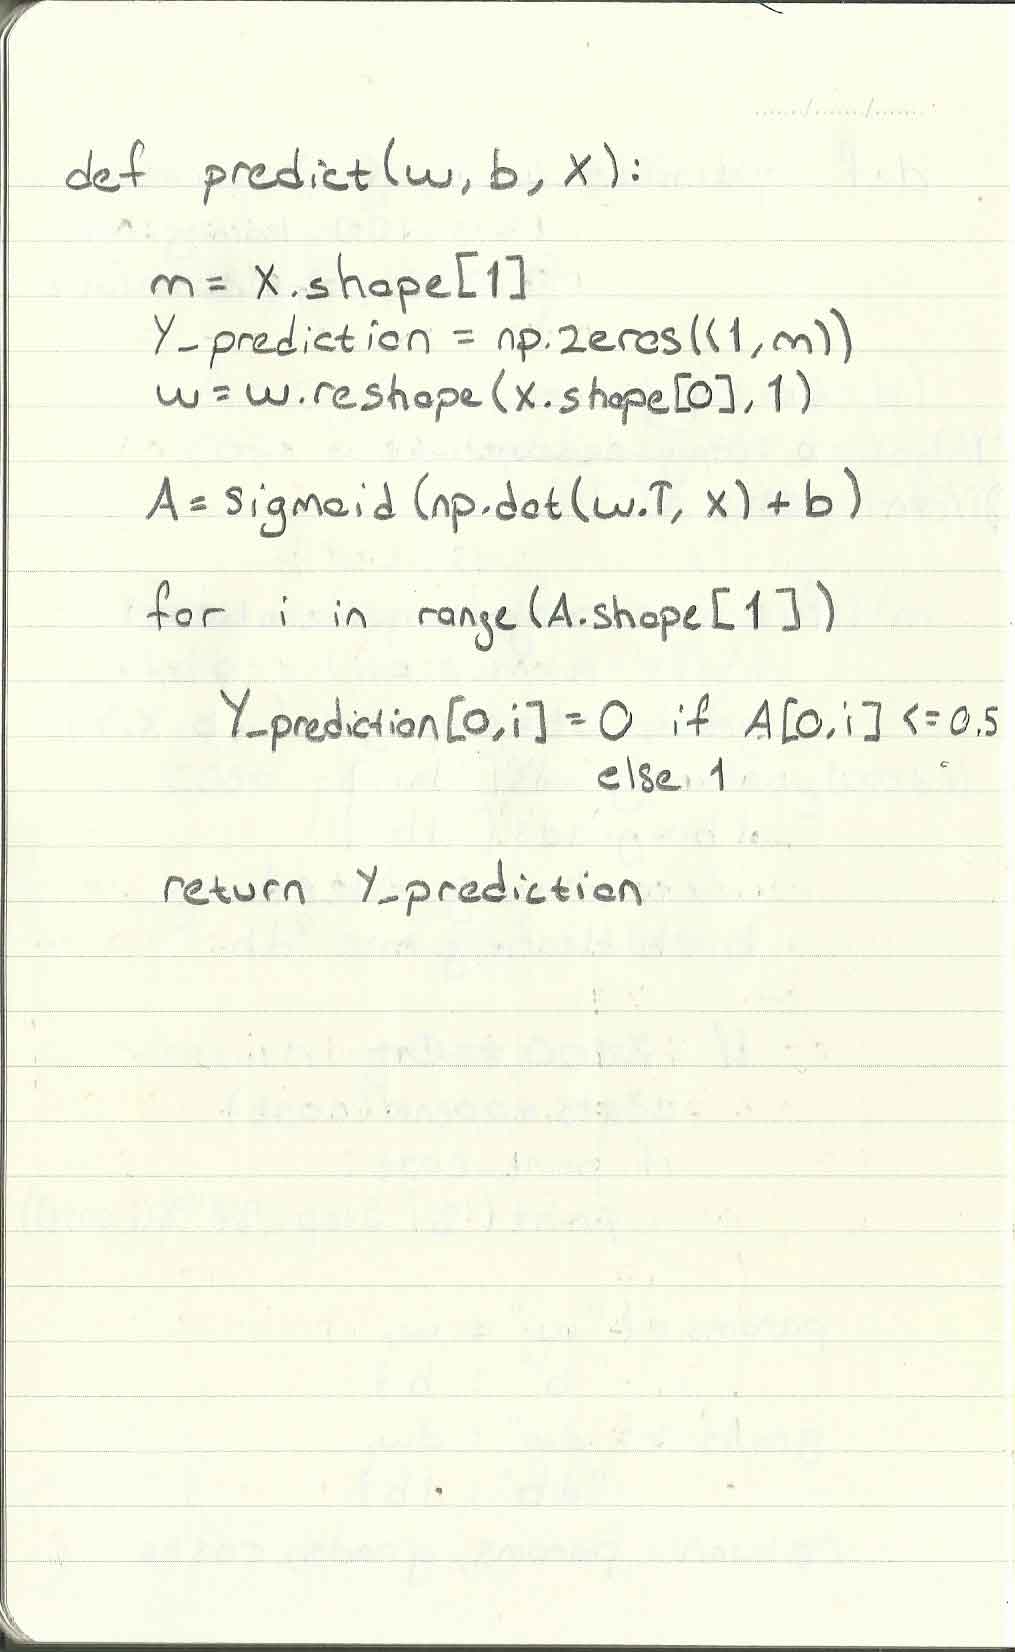 def predict(w, b, X):
m = X.shape[1]
Y_prediction = np.zeros((1, m))
w = w.reshape(X.shape[0], 1)
A = sigmoid (np.dot(w.T, X) + b)
for i in range(A.shape[1])
Y_prediction[0,i] = 0 if A[0,i] <= 0.5
else 1
return Y_prediction